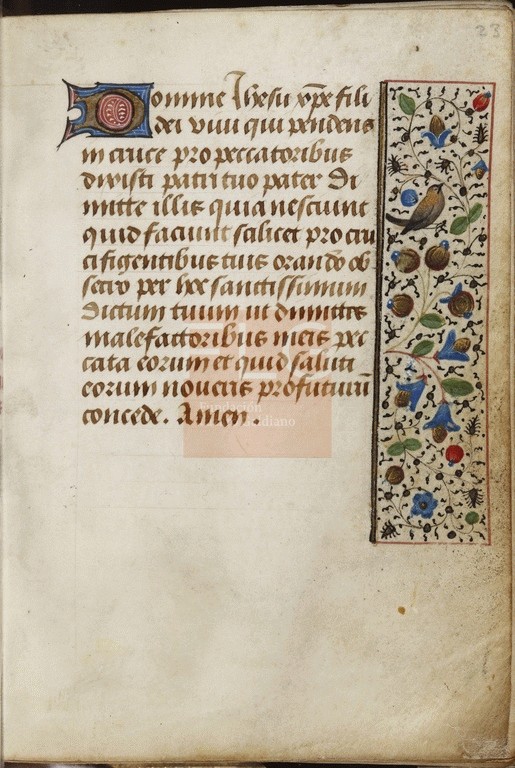 23
Domine Ihesu xpe fili
dei viui qui pendens
in cruce pro peccatoribus
dixisti patri tuo pater Di
mitte illis quia nesciunt
quid faciunt salicet pro cru
cifigentibus tuis orando ob
secro per hec sanctissimum
dictum tuum ut dimittas
malefactoribus meis pec
cata eorum et quid saluti
eorum noueris profuturum
concede. Amen.
Fundación
Galdiano